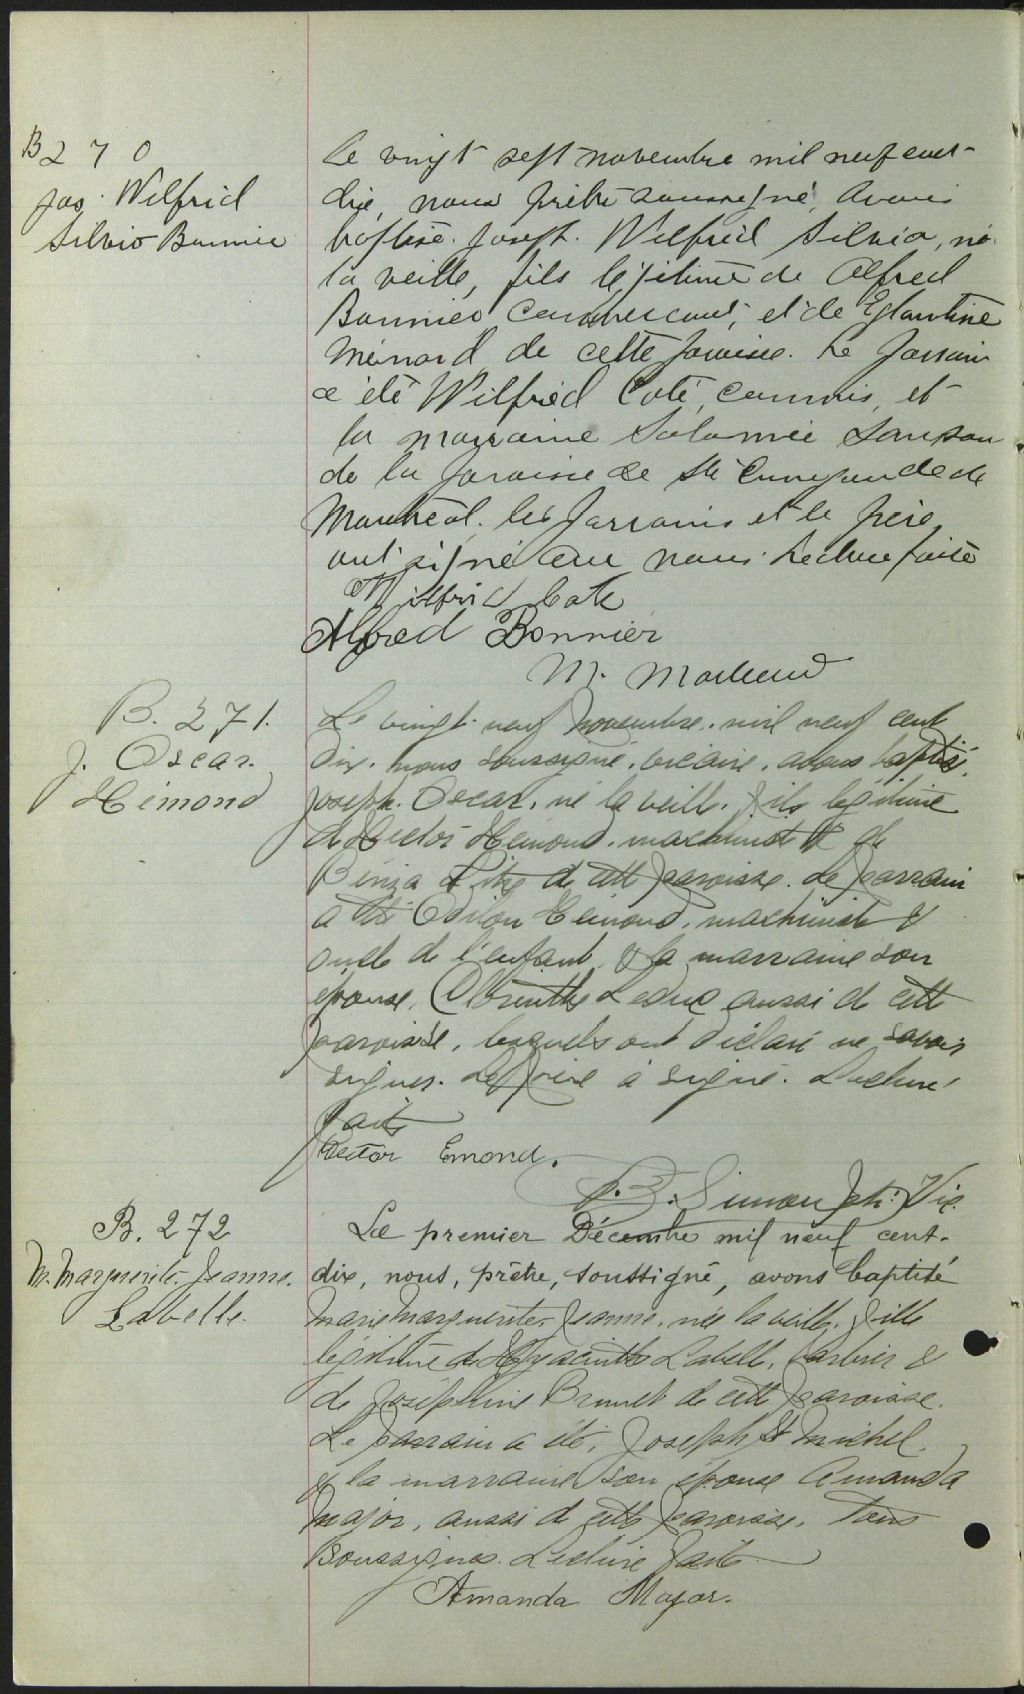 B 270
Jos. Wilfrid
Silvio Bonnier
Le vingt sept novembre mil neuf cent
dix, nous prêtre soussigné, avons
baptisé Joseph Wilfrid Silvio, né
la veille, fils légitime de Alfred
Bonnier commercant, et de Eglantine
Ménard de cette paroisse. Le parrain
a été Wilfrid Coté, commis, et
la marraine Salomée
de la paroisse de Ste Cunegonde de
Montréal. Les parrains et le père
ont signé avec nous. Lecture faite
Wilfrid Cote
Alfred Bonnier
M.
B. 271.
J. Oscar.
Hémond
Le vingt-neuf novembre mil neuf cent
dix, nous soussigné, vicaire, avons baptisé,
Joseph Oscar, né la veille, fils légitime
de Hector Hémond, machiniste & de
de cette paroisse. Le parrain
a été Odilon Hémond, machiniste &
oncle de l'enfant, & la marraine son
épouse, Leduc aussi de cette
paroisse, lesquels ont déclaré ne savoir
signer. Le père a signé. Lecture
faite
Hector Emond.
Simon Ptr. Vic.
B. 272
M. Marguerite-Jeanne.
Labelle.
Le premier Décembre mil neuf cent-
dix, nous, prêtre, soussigné, avons baptisé
Marie Marguerite-Jeanne, née la veille, fille
légitime de Hyacinthe Labelle, barbier &
de Joséphine Brunet de cette paroisse.
Le parrain a été, Joseph St Michel,
& la marraine son épouse Amanda
Major, aussi de cette paroisse. Tous
Soussignés. Lecture faite
Amanda Major.